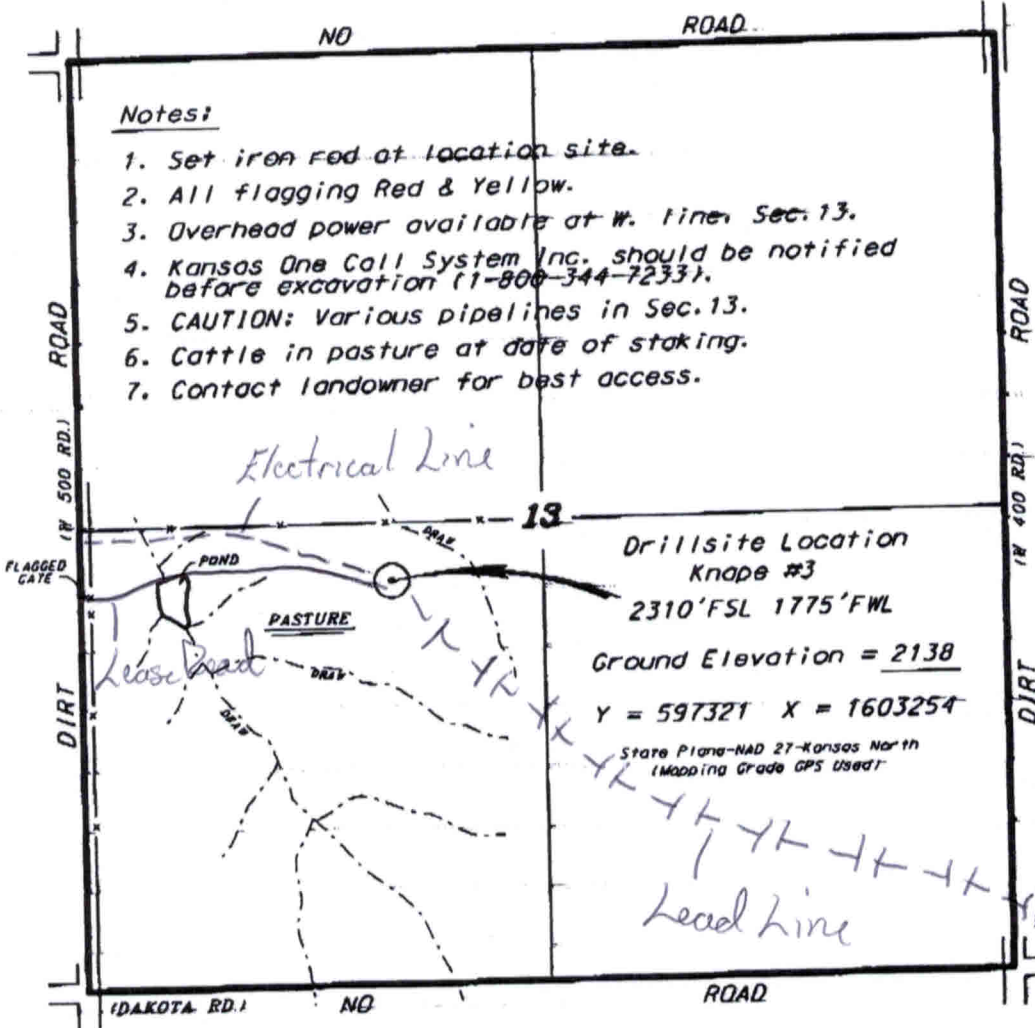 NO ROAD
Notes:
1. Set iron rod at location site.
2. All flagging Red & Yellow.
3. Overhead power available at W. line, Sec. 13.
4. Kansas One Call System Inc. should be notified
before excavation (1-800-344-7233).
5. CAUTION: Various pipelines in Sec. 13.
6. Cattle in pasture at date of staking.
7. Contact landowner for best access.
ROAD
(W 500 RD.)
DIRT
ROAD
(W 400 RD.)
DIRT
Electrical Line
13
DRAW
FLAGGED
GATE
POND
PASTURE
Lease Road
DRAW
DRAW
Drillsite Location
Knape #3
2310'FSL 1775'FWL
Ground Elevation = 2138
Y = 597321 X = 1603254
State Plane-NAD 27-Kansas North
(Mapping Grade GPS Used)
Lead Line
(DAKOTA RD.) NO ROAD